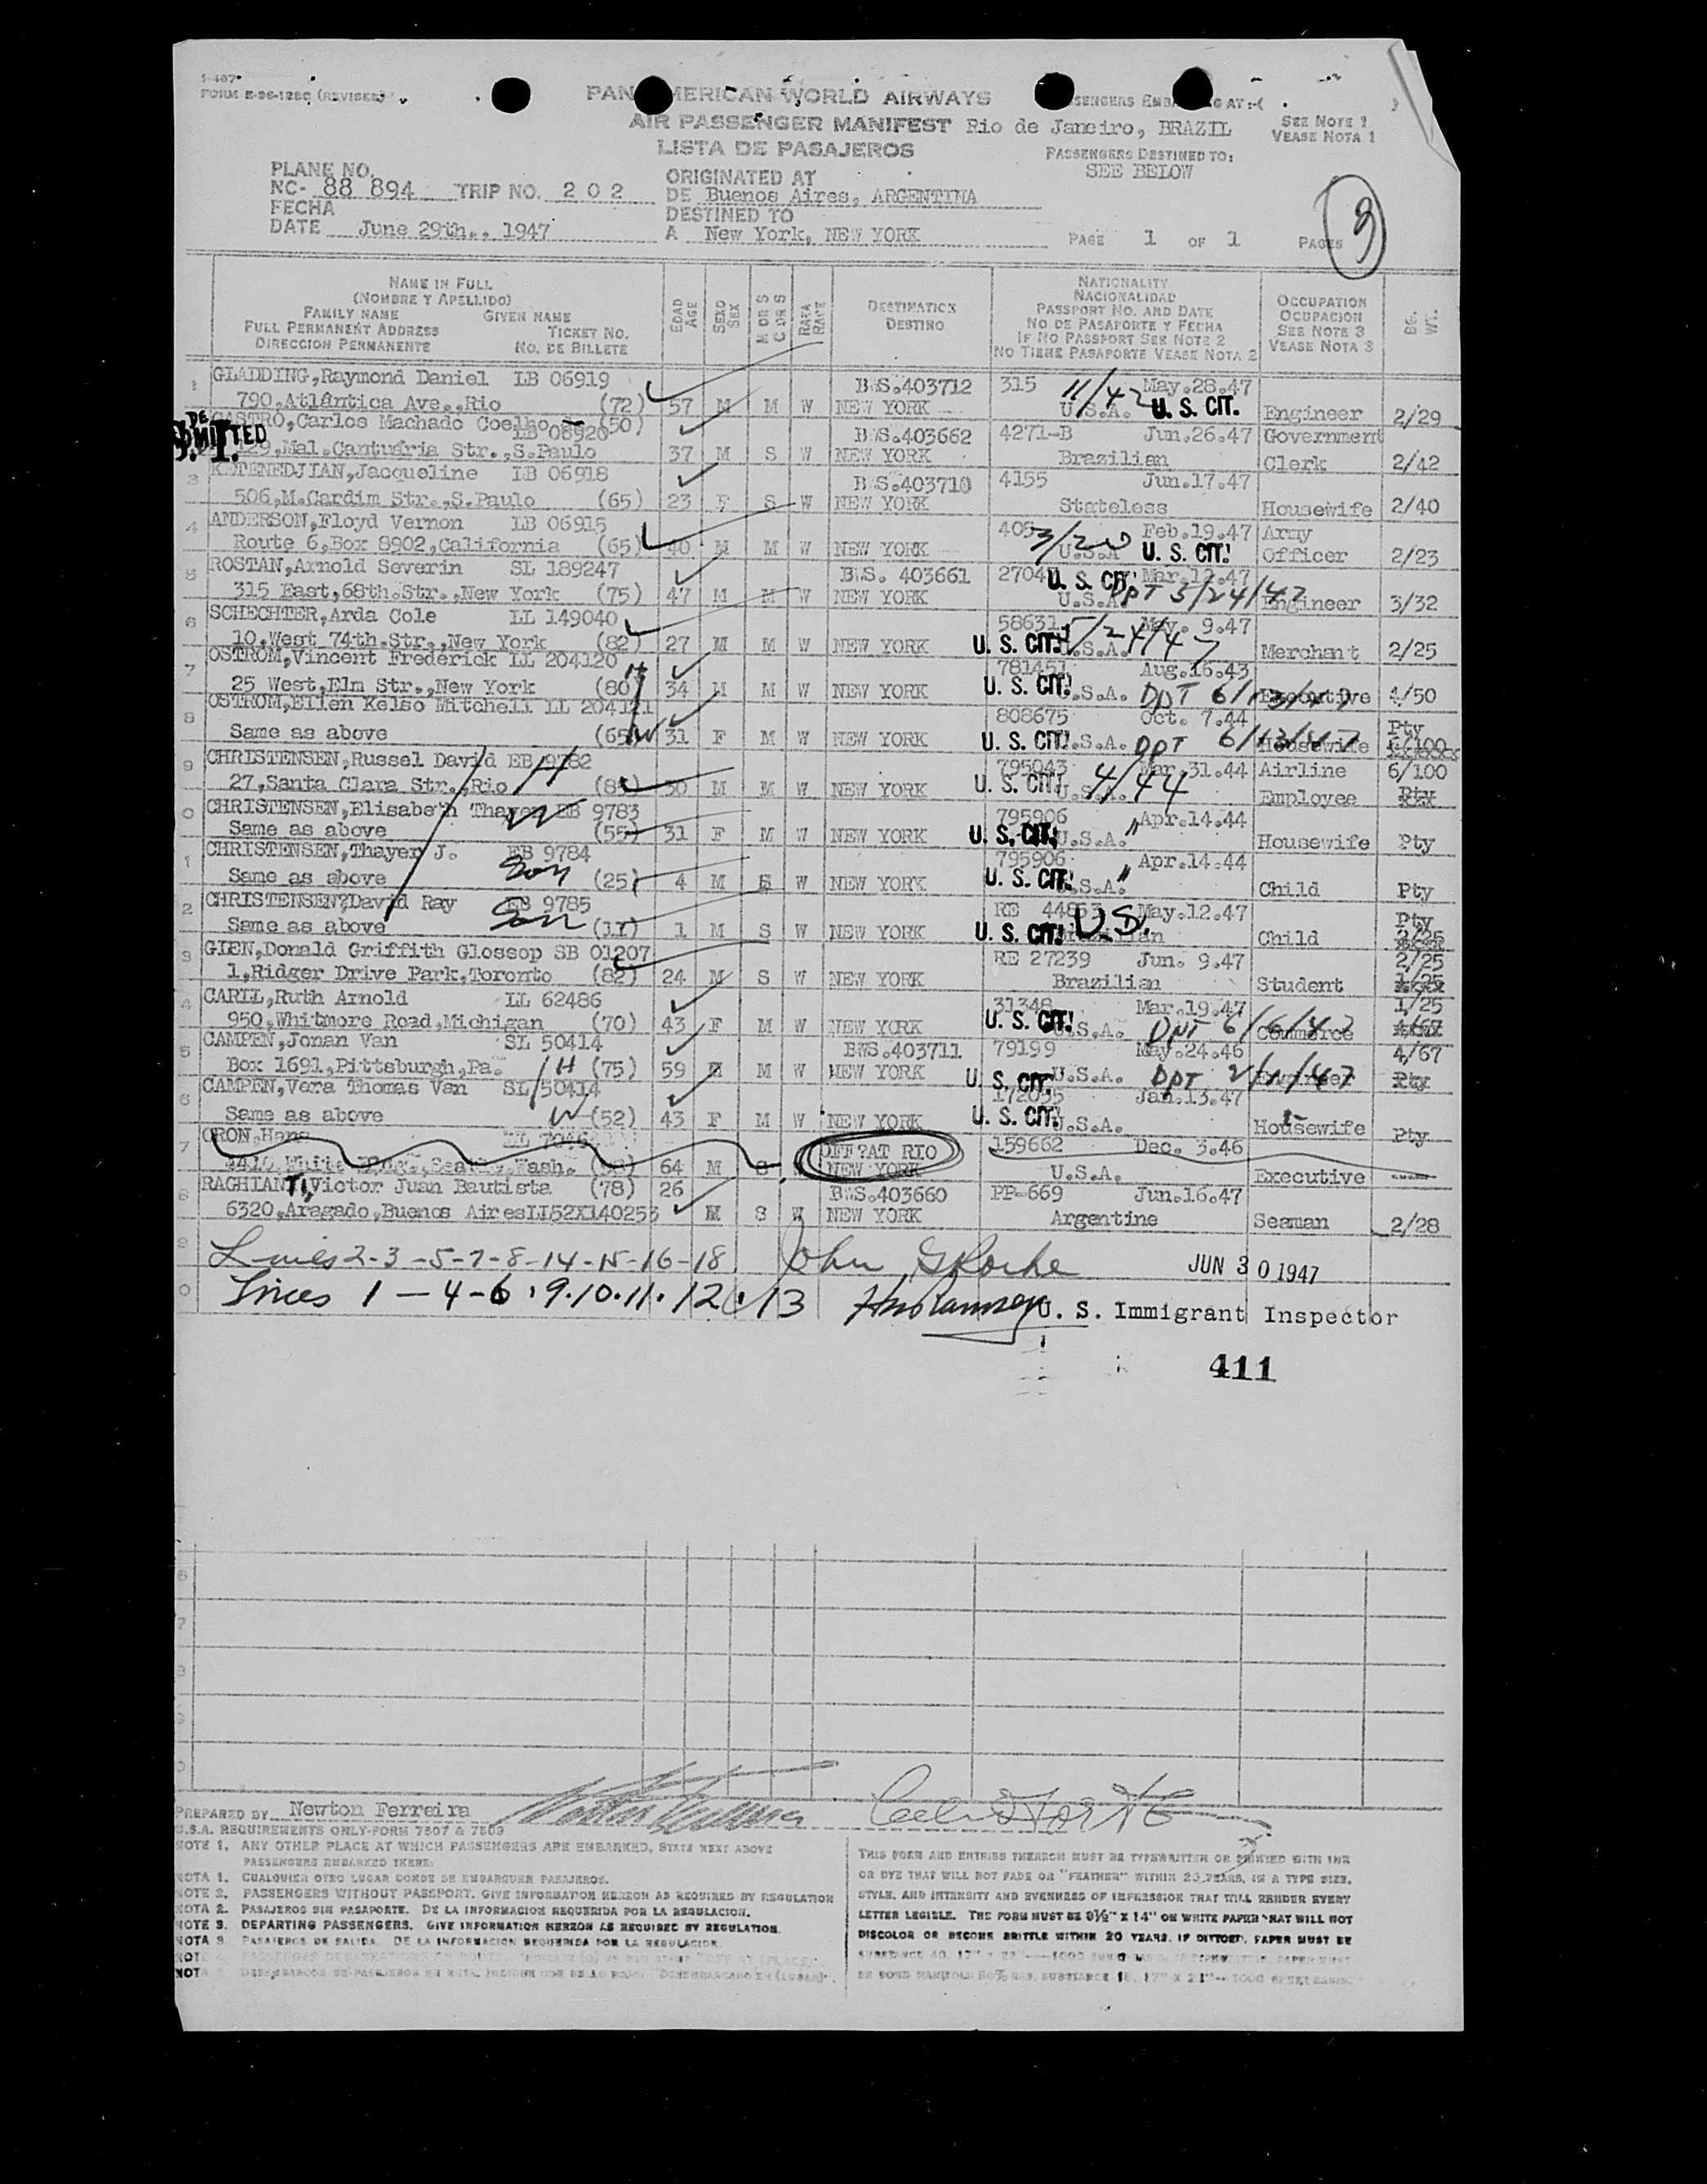 1-407
FORM E-96-128C (REVISED)
PAN AMERICAN WORLD AIRWAYS
AIR PASSENGER MANIFEST
LISTA DE PASAJEROS
PASSENGERS EMBARKING AT:-( )
Rio de Janeiro, BRAZIL
SEE NOTE 1
VEASE NOTA 1
PASSENGERS DESTINED TO:
SEE BELOW
PLANE NO.
NC- 88 894 TRIP NO. 2 0 2
FECHA
DATE June 29th., 1947
ORIGINATED AT
DE Buenos Aires, ARGENTINA
DESTINED TO
A New York, NEW YORK
PAGE 1 OF 1 PAGES
9
NAME IN FULL
(NOMBRE Y APELLIDO)
FAMILY NAME GIVEN NAME
FULL PERMANENT ADDRESS TICKET NO.
DIRECCION PERMANENTE NO. DE BILLETE
EDAD AGE
SEXO SEX
M OR S C OR S
RAZA RACE
DESTINATION
DESTINO
NATIONALITY
NACIONALIDAD
PASSPORT NO. AND DATE
NO DE PASAPORTE Y FECHA
IF NO PASSPORT SEE NOTE 2
NO TIENE PASAPORTE VEASE NOTA 2
OCCUPATION
OCUPACION
SEE NOTE 3
VEASE NOTA 3
BG. WT.
1 GLADDING,Raymond Daniel LB 06919 BWS.403712 315 11/42 May.28.47
790,Atlântica Ave.,Rio (72) 57 M M W NEW YORK U.S.A. U. S. CIT. Engineer 2/29
DE CASTRO,Carlos Machado Coelho (50)
LB 08920 BWS.403662 4271-B Jun.26.47 Government
ADMITTED
129,Mal.Cantuária Str.,S.Paulo 37 M S W NEW YORK Brazilian Clerk 2/42
3 KOTENEDJIAN,Jacqueline LB 06918 BWS.403710 4155 Jun.17.47
506,M.Cardim Str.,S.Paulo (65) 23 F S W NEW YORK Stateless Housewife 2/40
4 ANDERSON,Floyd Vernon LB 06915 Feb.19.47 Army
Route 6,Box 8902,California (65) 40 M M W NEW YORK 3/20 U.S.A U. S. CIT. Officer 2/23
5 ROSTAN,Arnold Severin SL 189247 BWS. 403661 Mar.12.47
315 East,68th.Str.,New York (75) 47 M M W NEW YORK U. S. CIT. U.S.A. DPT 3/24/47 Engineer 3/32
6 SCHECHTER,Arda Cole LL 149040 58631 May. 9.47
10,West 74th.Str.,New York (82) 27 M M W NEW YORK U. S. CIT. U.S.A. Merchant 2/25
7 OSTROM,Vincent Frederick LL 204120 H 781451 Aug.16.43
25 West,Elm Str.,New York (80) 34 M M W NEW YORK U. S. CIT. U.S.A. DPT 6/13/47 Executive 4/50
8 OSTROM,Ellen Kelso Mitchell LL 204121 808675 Oct. 7.44 Pty
Same as above (65) W 31 F M W NEW YORK U. S. CIT. U.S.A. DPT 6/13/47 Housewife
9 CHRISTENSEN,Russel David EB 9782 H 795043 Mar.31.44 Airline 6/100
27,Santa Clara Str.,Rio 30 M M W NEW YORK U. S. CIT. U.S.A. 4/44 Employee Pty
0 CHRISTENSEN,Elisabeth Thayer EB 9783 W 795906 Apr.14.44
Same as above (55) 31 F M W NEW YORK U. S. CIT. U.S.A. " Housewife Pty
1 CHRISTENSEN,Thayer J. EB 9784 795906 Apr.14.44
Same as above Son (25) 4 M S W NEW YORK U. S. CIT. U.S.A. " Child Pty
2 CHRISTENSEN?David Ray EB 9785 RE 44853 May.12.47 Pty
Same as above Son (11) 1 M S W NEW YORK U. S. CIT. U.S. Brazilian Child
3 GLEN,Donald Griffith Glossop SB 01207 RE 27239 Jun. 9.47 2/25
1,Ridger Drive Park,Toronto (82) 24 M S W NEW YORK Brazilian Student
4 CARLL,Ruth Arnold LL 62486 31348 Mar.19.47 1/25
950,Whitmore Road,Michigan (70) 43 F M W NEW YORK U. S. CIT. U.S.A. DPT 6/6/47 Commerce
5 CAMPEN,Jonan Van SL 50414 BWS.403711 79199 May.24.46 4/67
Box 1691,Pittsburgh,Pa. H (75) 59 M M W NEW YORK U. S. CIT. U.S.A. DPT 2/1/47 Engineer Pty
6 CAMPEN,Vera Thomas Van SL 50414 172035 Jan.13.47
Same as above W (52) 43 F M W NEW YORK U. S. CIT. U.S.A. Housewife Pty
7 ORON,Hans OFF?AT RIO 159662 Dec. 3.46
Wash. 64 M S W NEW YORK U.S.A. Executive
8 RACHIANTI,Victor Juan Bautista (78) 26 BWS.403660 PP-669 Jun.16.47
6320,Aragado,Buenos Aires M S W NEW YORK Argentine Seaman 2/28
9 Lines 2-3-5-7-8-14-15-16-18 John G Roche JUN 30 1947
0 Lines 1-4-6,9.10.11.12.13 U. S. Immigrant Inspector
411
6
7
8
9
0
PREPARED BY Newton Ferreira
U.S.A. REQUIREMENTS ONLY-FORM 7507 & 7509
NOTE 1. ANY OTHER PLACE AT WHICH PASSENGERS ARE EMBARKED, STATE NEXT ABOVE
PASSENGERS EMBARKED THERE:
NOTA 1. CUALQUIER OTRO LUGAR DONDE SE EMBARQUEN PASAJEROS.
NOTE 2. PASSENGERS WITHOUT PASSPORT. GIVE INFORMATION HEREON AS REQUIRED BY REGULATION
NOTA 2. PASAJEROS SIN PASAPORTE. DE LA INFORMACION REQUERIDA POR LA REGULACION.
NOTE 3. DEPARTING PASSENGERS. GIVE INFORMATION HEREON AS REQUIRED BY REGULATION.
NOTA 3. PASAJEROS DE SALIDA. DE LA INFORMACION REQUERIDA POR LA REGULACION.
NOTE
NOTA
THIS FORM AND ENTRIES THEREON MUST BE TYPEWRITTEN OR PRINTED WITH INK
OR DYE THAT WILL NOT FADE OR "FEATHER" WITHIN 20 YEARS, IN A TYPE SIZE,
STYLE, AND INTENSITY AND EVENNESS OF IMPRESSION THAT WILL RENDER EVERY
LETTER LEGIBLE. THE FORM MUST BE 8½" X 14" ON WHITE PAPER THAT WILL NOT
DISCOLOR OR BECOME BRITTLE WITHIN 20 YEARS. IF DITTOED, PAPER MUST BE